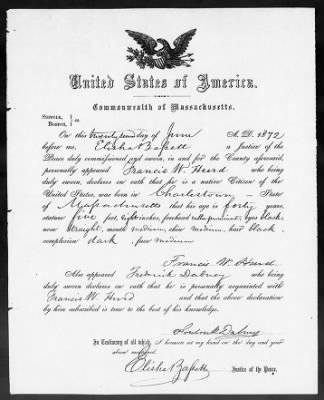 United States of America.
Commonwealth of Massachusetts.
SUFFOLK,
BOSTON, } ss.
On this twenty second day of June A. D. 1872
before me, Elisha Bassett a Justice of the
Peace duly commissioned and sworn, in and for the County aforesaid,
personally appeared Francis W. Hurd who being
duly sworn, declares on oath that he is a native Citizen of the
United States, was born in Charlestown State
of Massachusetts that his age is forty years,
stature five feet, eight inches, forehead rather prominent, eyes black,
nose straight, mouth medium, chin medium, hair black,
complexion dark, face medium
Francis W. Hurd.
Also appeared Frederick Dabney who being
duly sworn declares on oath that he is personally acquainted with
Francis W. Hurd and that the above declaration
by him subscribed is true to the best of his knowledge.
Frederick Dabney
In Testimony of all which, I hereunto set my hand on the day and year
above mentioned.
Elisha Bassett Justice of the Peace.